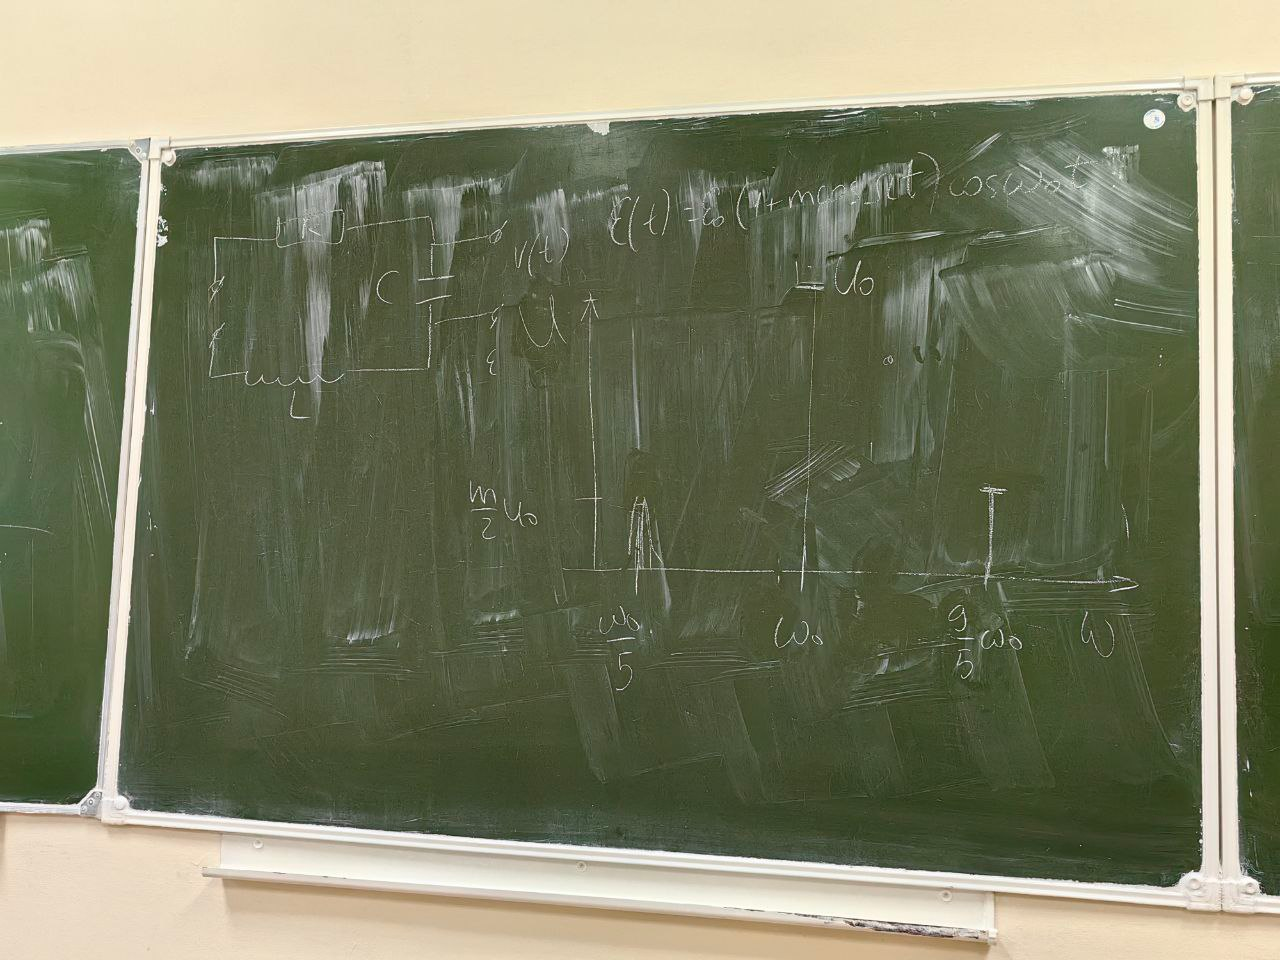 R
C
L
V(t)
ε(t) = ε₀ (1 + m cos Ωt) cos ω₀t
U
U₀
m/2 U₀
ω₀/5
ω₀
9/5 ω₀
ω